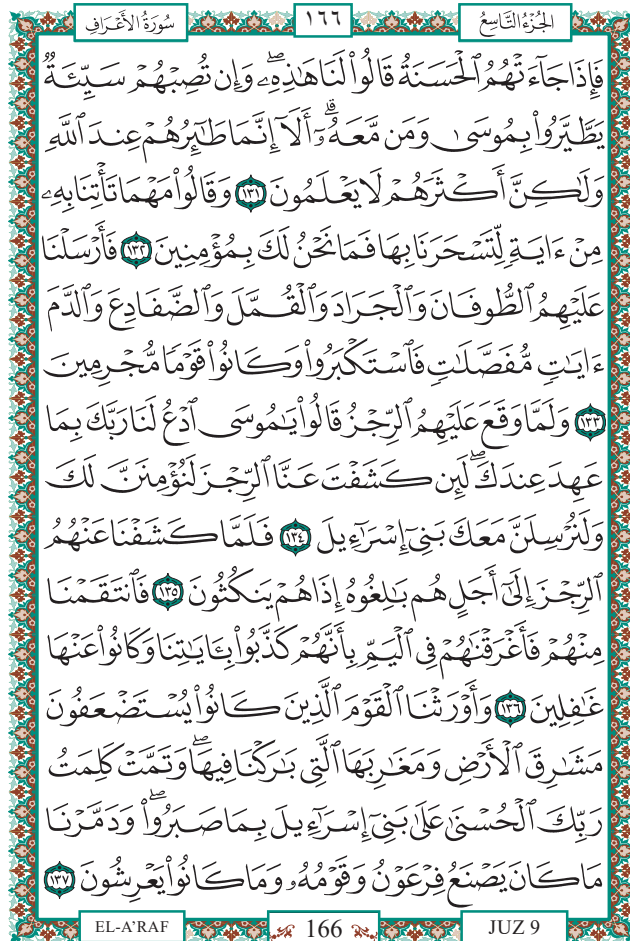 سُورَةُ الأَعْرَافِ ١٦٦ الجُزْءُ التَّاسِعُ
فَإِذَا جَآءَتْهُمُ ٱلْحَسَنَةُ قَالُوا۟ لَنَا هَـٰذِهِۦۖ وَإِن تُصِبْهُمْ سَيِّئَةٌ
يَطَّيَّرُوا۟ بِمُوسَىٰ وَمَن مَّعَهُۥٓۗ أَلَآ إِنَّمَا طَـٰٓئِرُهُمْ عِندَ ٱللَّهِ
وَلَـٰكِنَّ أَكْثَرَهُمْ لَا يَعْلَمُونَ ١٣١ وَقَالُوا۟ مَهْمَا تَأْتِنَا بِهِۦ
مِنْ ءَايَةٍ لِّتَسْحَرَنَا بِهَا فَمَا نَحْنُ لَكَ بِمُؤْمِنِينَ ١٣٢ فَأَرْسَلْنَا
عَلَيْهِمُ ٱلطُّوفَانَ وَٱلْجَرَادَ وَٱلْقُمَّلَ وَٱلضَّفَادِعَ وَٱلدَّمَ
ءَايَـٰتٍ مُّفَصَّلَـٰتٍ فَٱسْتَكْبَرُوا۟ وَكَانُوا۟ قَوْمًا مُّجْرِمِينَ
١٣٣ وَلَمَّا وَقَعَ عَلَيْهِمُ ٱلرِّجْزُ قَالُوا۟ يَـٰمُوسَى ٱدْعُ لَنَا رَبَّكَ بِمَا
عَهِدَ عِندَكَۖ لَئِن كَشَفْتَ عَنَّا ٱلرِّجْزَ لَنُؤْمِنَنَّ لَكَ
وَلَنُرْسِلَنَّ مَعَكَ بَنِىٓ إِسْرَٰٓءِيلَ ١٣٤ فَلَمَّا كَشَفْنَا عَنْهُمُ
ٱلرِّجْزَ إِلَىٰٓ أَجَلٍ هُم بَـٰلِغُوهُ إِذَا هُمْ يَنكُثُونَ ١٣٥ فَٱنتَقَمْنَا
مِنْهُمْ فَأَغْرَقْنَـٰهُمْ فِى ٱلْيَمِّ بِأَنَّهُمْ كَذَّبُوا۟ بِـَٔايَـٰتِنَا وَكَانُوا۟ عَنْهَا
غَـٰفِلِينَ ١٣٦ وَأَوْرَثْنَا ٱلْقَوْمَ ٱلَّذِينَ كَانُوا۟ يُسْتَضْعَفُونَ
مَشَـٰرِقَ ٱلْأَرْضِ وَمَغَـٰرِبَهَا ٱلَّتِى بَـٰرَكْنَا فِيهَاۖ وَتَمَّتْ كَلِمَتُ
رَبِّكَ ٱلْحُسْنَىٰ عَلَىٰ بَنِىٓ إِسْرَٰٓءِيلَ بِمَا صَبَرُوا۟ۖ وَدَمَّرْنَا
مَا كَانَ يَصْنَعُ فِرْعَوْنُ وَقَوْمُهُۥ وَمَا كَانُوا۟ يَعْرِشُونَ ١٣٧
EL-A'RAF 166 JUZ 9